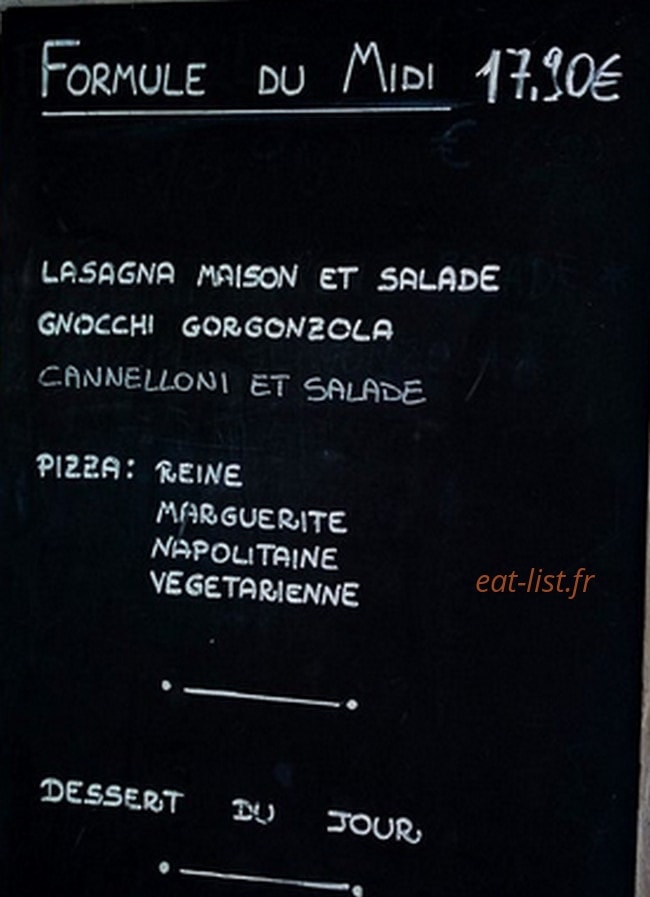 FORMULE DU MIDI 17,90€
LASAGNA MAISON ET SALADE
GNOCCHI GORGONZOLA
CANNELLONI ET SALADE
PIZZA: REINE
MARGUERITE
NAPOLITAINE
VEGETARIENNE
eat-list.fr
DESSERT DU JOUR